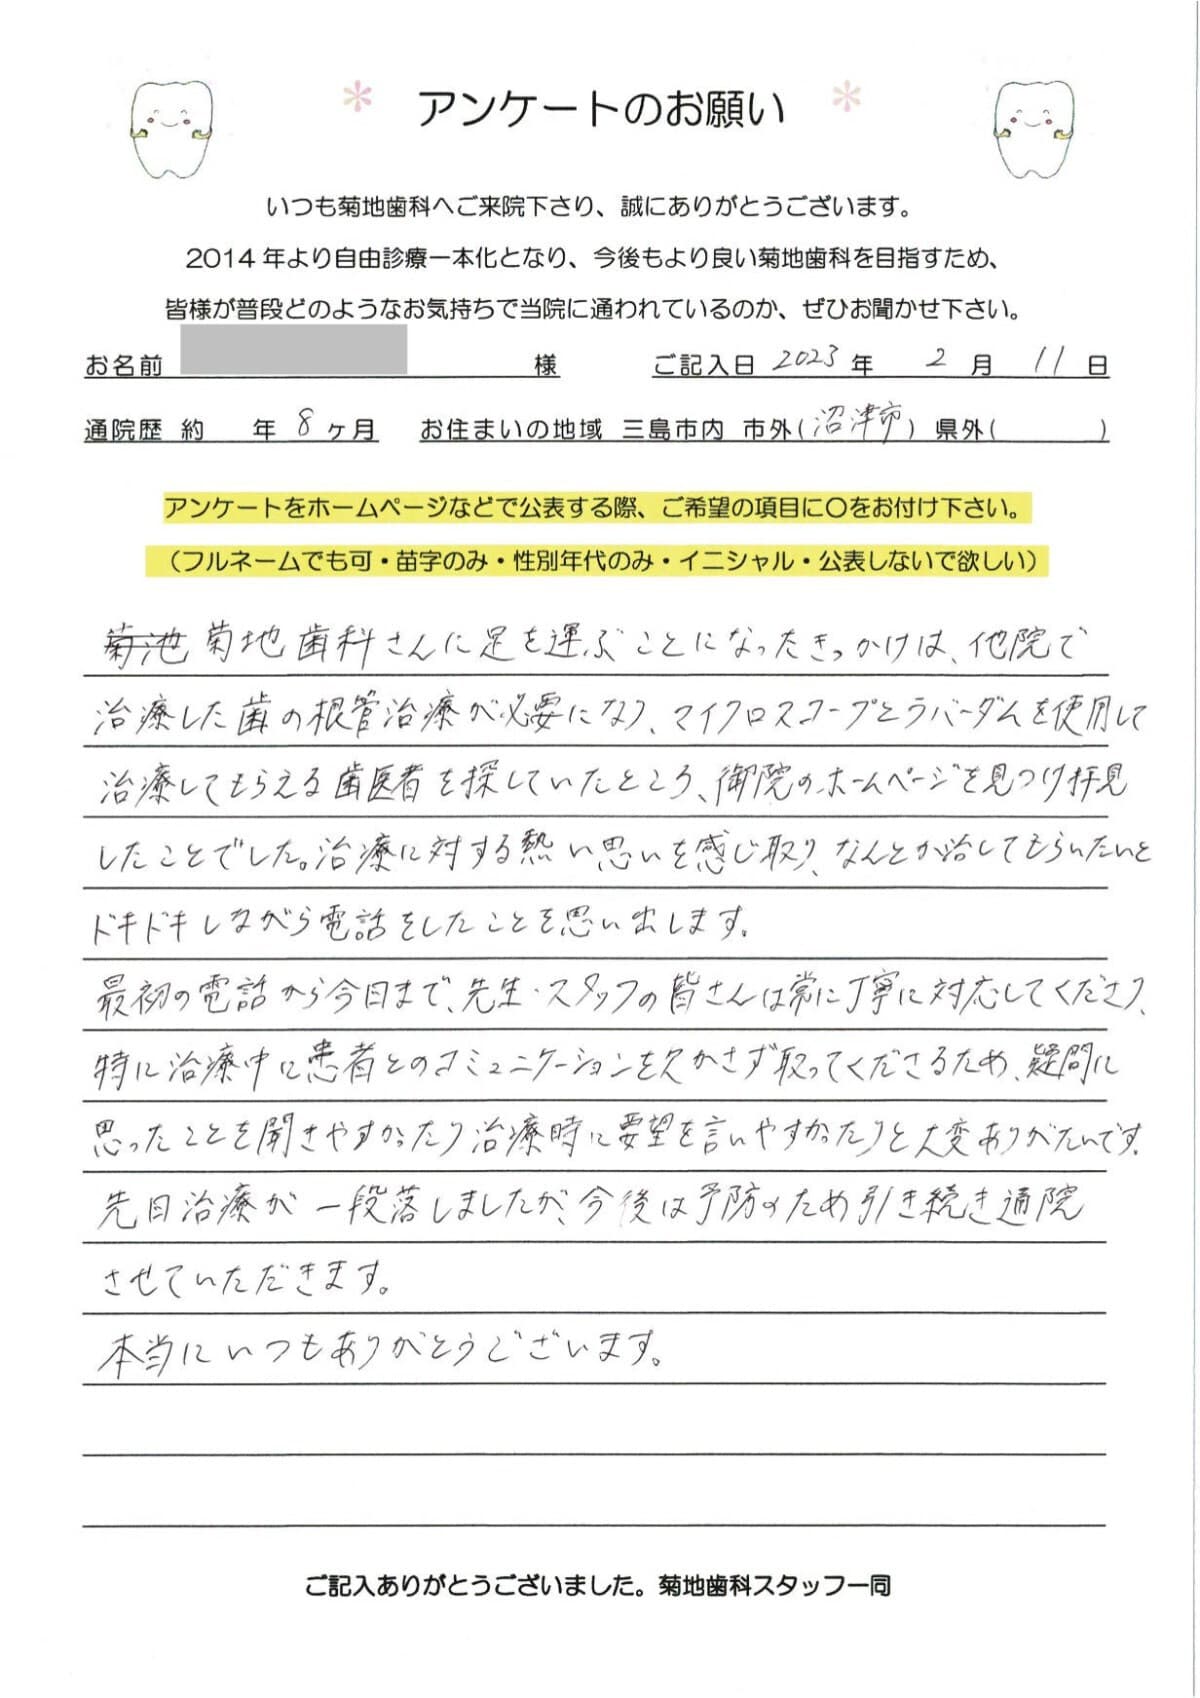 アンケートのお願い
いつも菊地歯科へご来院下さり、誠にありがとうございます。
2014年より自由診療一本化となり、今後もより良い菊地歯科を目指すため、
皆様が普段どのようなお気持ちで当院に通われているのか、ぜひお聞かせ下さい。
お名前 様 ご記入日 2023 年 2 月 11 日
通院歴 約 年 8 ヶ月 お住まいの地域 三島市内 市外(沼津市) 県外( )
アンケートをホームページなどで公表する際、ご希望の項目に〇をお付け下さい。
（フルネームでも可・苗字のみ・性別年代のみ・イニシャル・公表しないで欲しい）
菊池 菊地歯科さんに足を運ぶことになったきっかけは、他院で
治療した歯の根管治療が必要になり、マイクロスコープとラバーダムを使用して
治療してもらえる歯医者を探していたところ、御院のホームページを見つけ拝見
したことでした。治療に対する熱い思いを感じ取り、なんとか治してもらいたいと
ドキドキしながら電話をしたことを思い出します。
最初の電話から今日まで、先生・スタッフの皆さんは常に丁寧に対応してくださり、
特に治療中に患者とのコミュニケーションを欠かさず取ってくださるため、疑問に
思ったことを聞きやすかったり治療時に要望を言いやすかったりと大変ありがたいです。
先日治療が一段落しましたが、今後は予防のため引き続き通院
させていただきます。
本当にいつもありがとうございます。
ご記入ありがとうございました。菊地歯科スタッフ一同